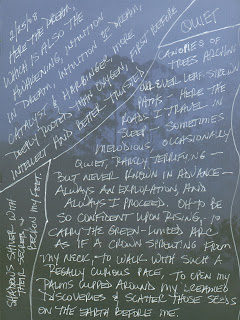 2/25/08
HERE THE DREAM,
WHICH IS ALSO THE
AWAKENING, INTUITION
IN DREAM, INTUITION IS DREAM,
CATALYST & HARBINGER, MORE
DEEPLY TRUSTED THAN OXYGEN, FIRST BEFORE
INTELLECT AND BETTER TRUSTED
SHADOWS SAVER WITH
THEIR SECRETS &
BECKON MY FEET.
QUIET
CANOPIES OF
TREES ARCHING
OVER LEAF-STREWN
PATHS - HERE THE
ROADS I TRAVEL IN
SLEEP SOMETIMES
MELODIOUS, OCCASIONALLY
QUIET, RARELY TERRIFYING -
BUT NEVER KNOWN IN ADVANCE -
ALWAYS AN EXPLORATION, AND
ALWAYS I PROCEED. OH TO BE
SO CONFIDENT UPON RISING, TO
CARRY THE GREEN-LIMBED ARC
AS IF A CROWN SPROUTING FROM
MY NECK, TO WALK WITH SUCH A
REGALLY CURIOUS PACE, TO OPEN MY
PALMS CUPPED AROUND MY DREAMED
DISCOVERIES & SCATTER THOSE SEEDS
ON THE EARTH BEFORE ME.